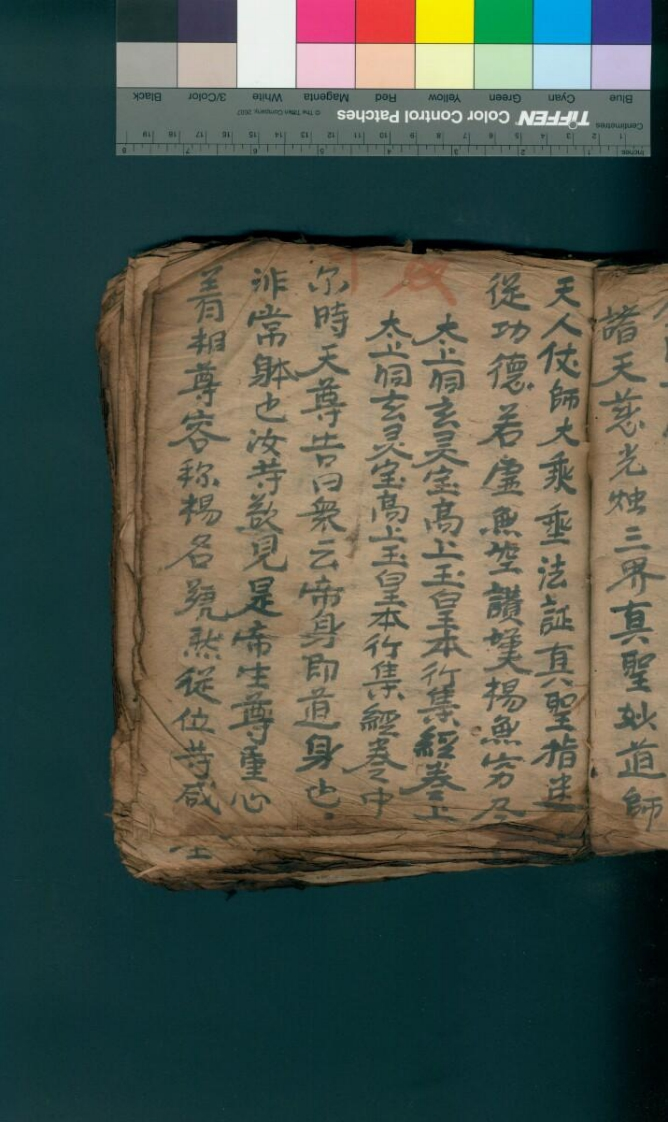 諸天慈光烛三界真聖妙道師
天人仗師大乘垂法証真聖指迷
從功德若虚無空讚嘆楊無窮尽
太上洞玄灵宝高上玉皇本行集經卷之上
太上洞玄灵宝高上玉皇本行集經卷之中
尔時天尊告曰衆云帝身即道身也
非常躰也汝苛欲見是帝生尊重心
着相尊容称楊名號然從位苛咸
Blue
Cyan
Green
Yellow
Red
Magenta
White
3/Color
Black
TIFFEN Color Control Patches
© The Tiffen Company, 2007
Centimetres
Inches